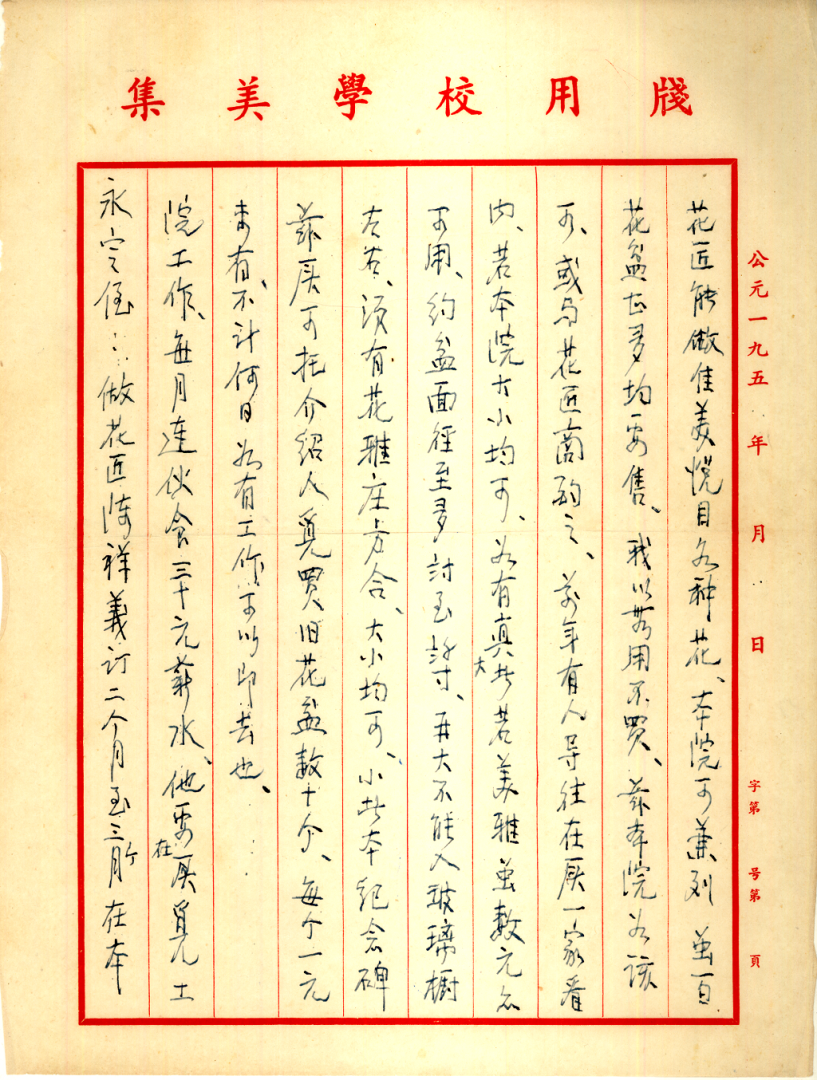 集美學校用牋
永定侄：做花匠陈祥義订二个月至三个月在本
院工作、每月連伙食三十元薪水、他要在厦覓工
未有、不计何日如有工作可以即去也、
茲厦可托介紹人覓買旧花盆数十个、每个一元
左右、須有花雅庄方合、大小均可、小者本纪念碑
可用、约盆面徑至多 至 、再大不能入玻璃橱
内、若本院大小均可、如有真大者若美雅虽数元亦
可、或与花匠商酌之、前年有人导往在厦一家看
花盆甚多均要售、我以無用不買、茲本院如該
花匠能做佳美悅目各种花、本院可兼列 虽百
公元一九五 年 月 日 字第 号第 頁